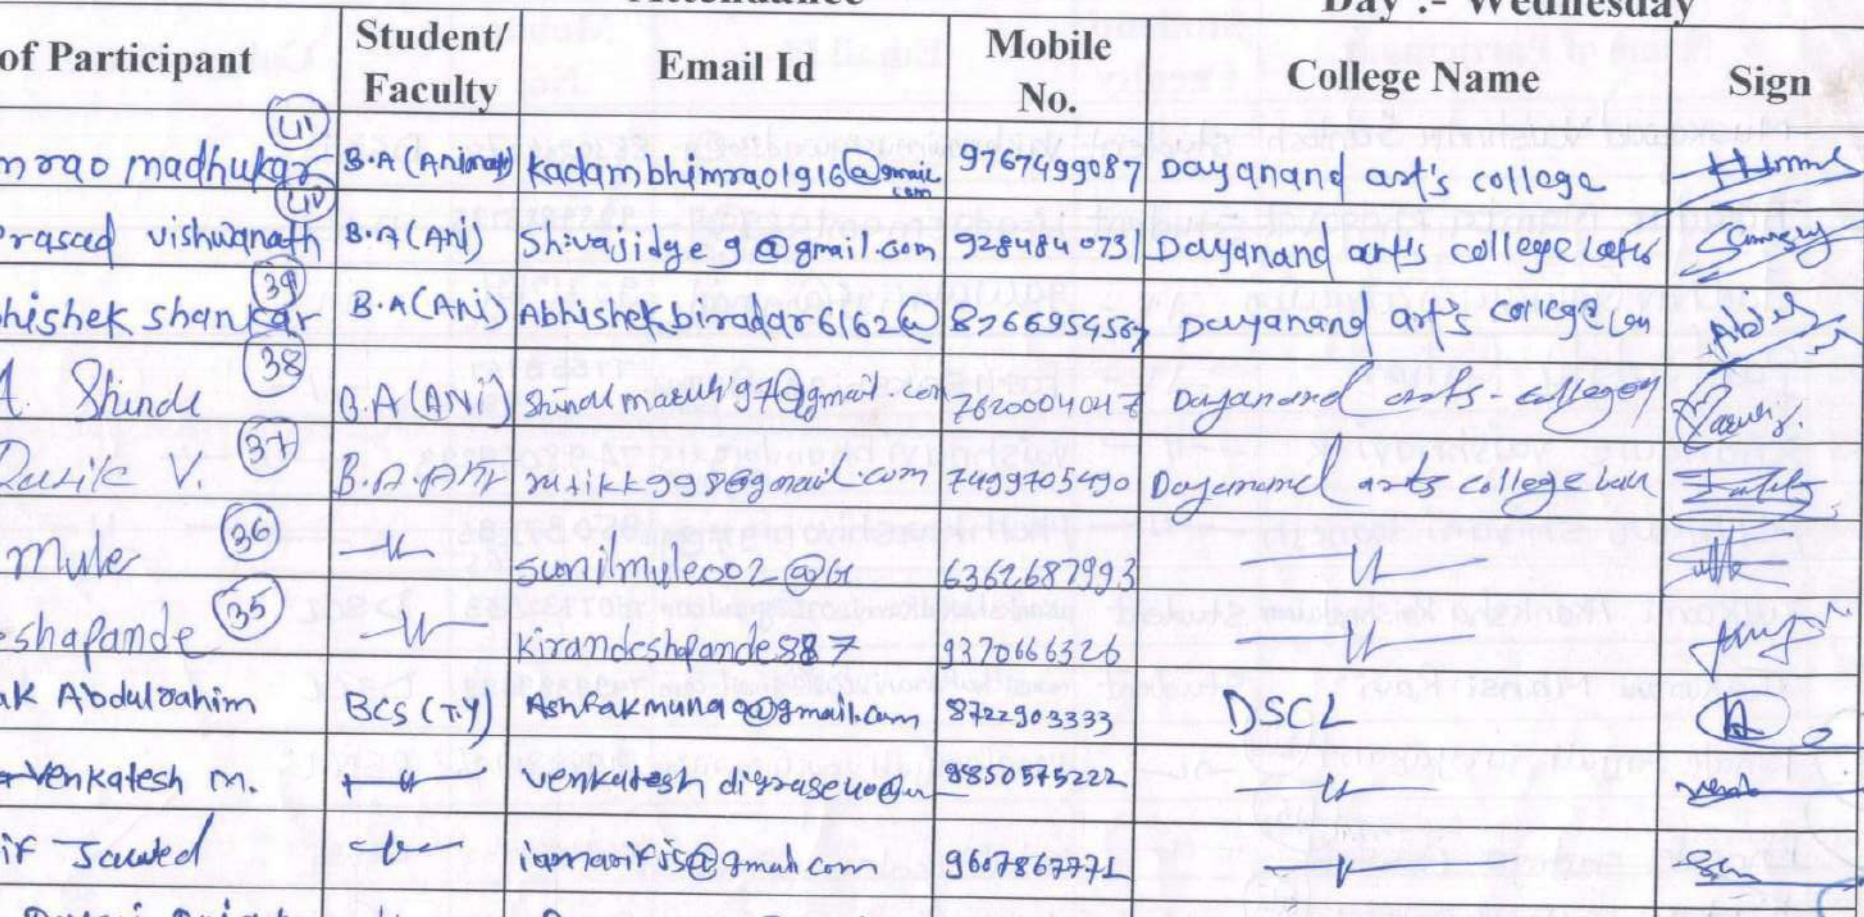 Attendance Day :- Wednesday
of Participant Student/ Faculty Email Id Mobile No. College Name Sign
41
mrao madhukar B.A (Animat) kadambhimrao1916@gmail.com 9767499087 Dayanand art's college
40
Prasad vishwanath B.A (ANI) Shivajidge9@gmail.com 9284840731 Dayanand arts college Latur
39
bhishek shankar B.A (Ani) Abhishekbiradar6162@ 8766954567 Dayanand art's college
38
A. Shinde B.A (ANi) 7620004047 Dayanand arts - college
37
V. B.A. rutikk998@gmail.com 7499705490 Dayanand arts college
36
Mule -||- sunilmule002@G 6362687993 -||-
35
shapande -||- Kirandeshpande887 9370666326 -||-
ak Abdulrahim BCS (T.Y) Ashfakmuna9@gmail.com 8722903333 DSCL
Venkatesh m. -||- 9850575222 -||-
if Jawed -||- iamarifjs@gmail.com 9607867771 -||-